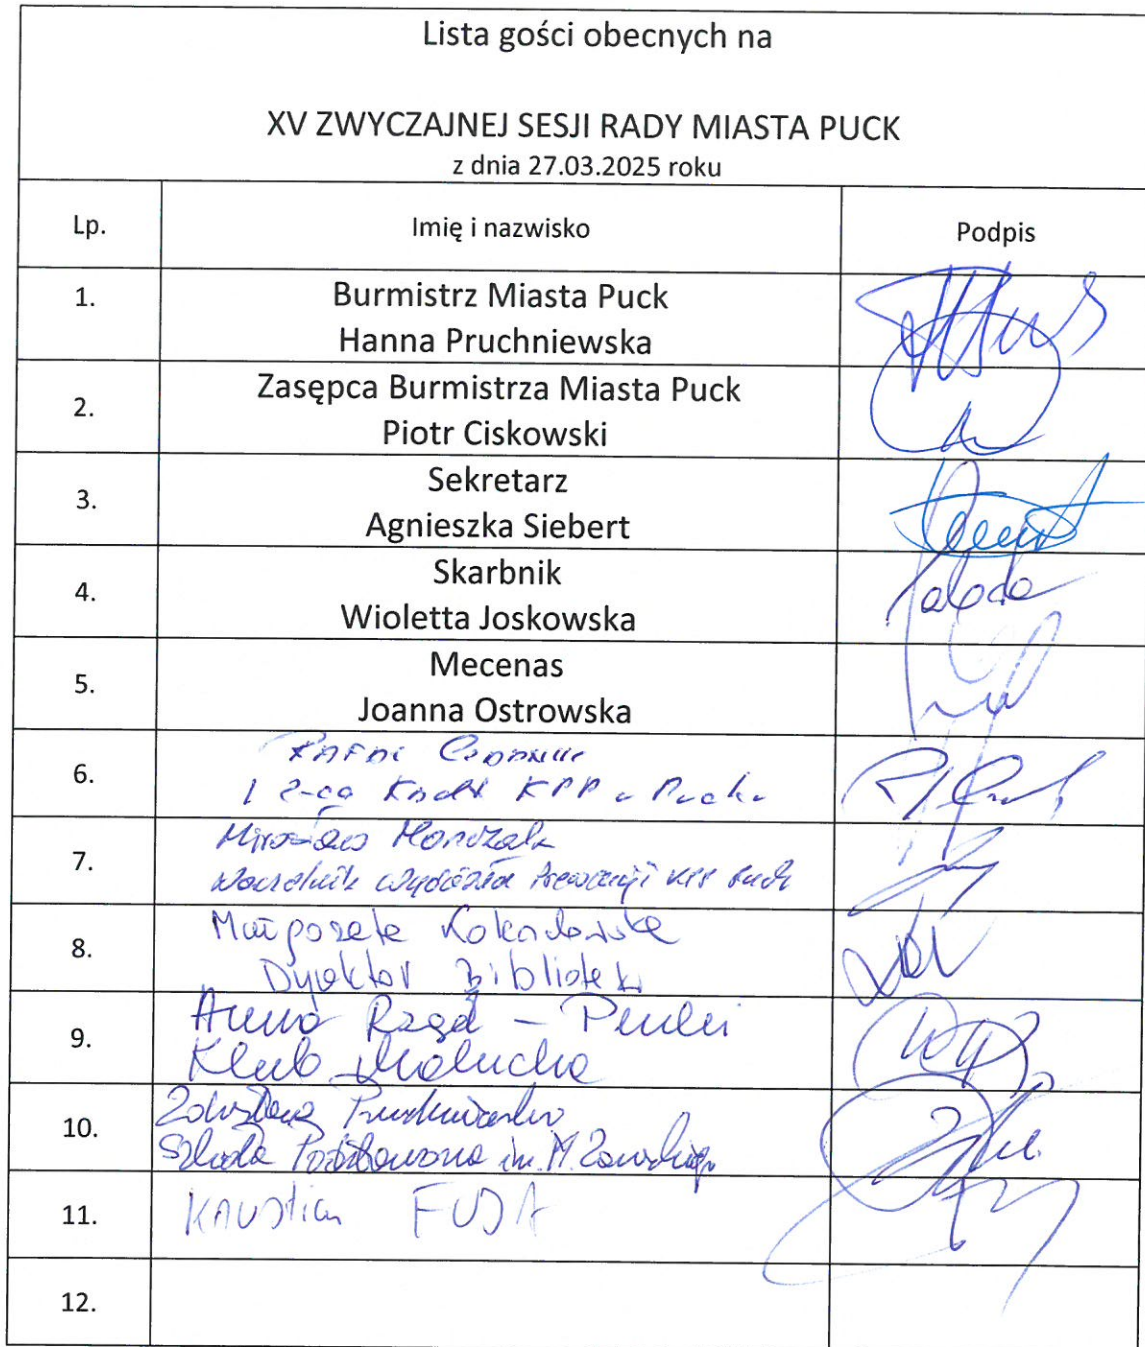 Lista gości obecnych na
XV ZWYCZAJNEJ SESJI RADY MIASTA PUCK
z dnia 27.03.2025 roku
Lp. Imię i nazwisko Podpis
1. Burmistrz Miasta Puck
Hanna Pruchniewska
2. Zasępca Burmistrza Miasta Puck
Piotr Ciskowski
3. Sekretarz
Agnieszka Siebert
4. Skarbnik
Wioletta Joskowska
5. Mecenas
Joanna Ostrowska
6. Rafał
I KPP Puck
7. Mirosław
Naczelnik Wydziału Prewencji KPP Puck
8. Małgorzata
Dyrektor Biblioteki
9. Anna Rząd -
Klub Malucha
10. Zdzisława
Szkoła Podstawowa im. M.
11. FUDA
12.